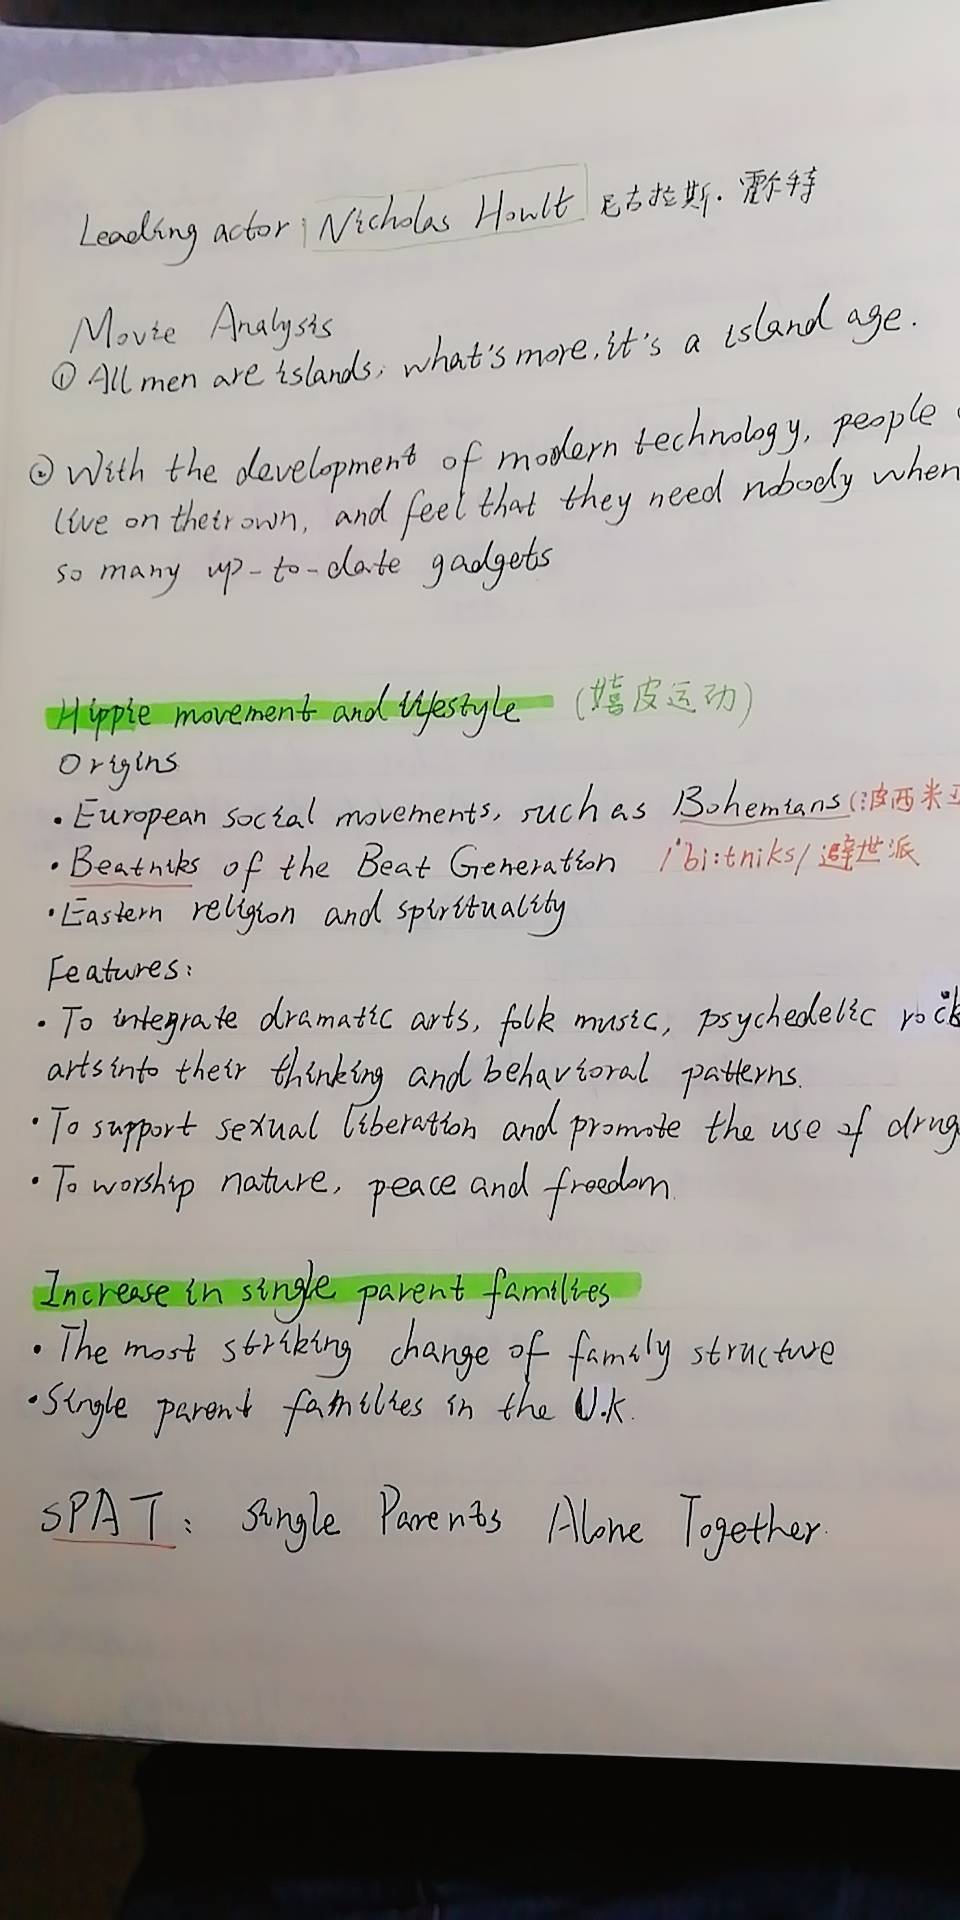 Leading actor: Nicholas Hoult 尼古拉斯·霍尔特
Movie Analysis
① All men are islands, what's more, it's a island age.
② With the development of modern technology, people
live on their own, and feel that they need nobody when
so many up-to-date gadgets
Hippie movement and lifestyle (嬉皮运动)
Origins
• European social movements, such as Bohemians (波西米
• Beatniks of the Beat Generation /'bi:tniks/ 避世派
• Eastern religion and spirituality
Features:
• To integrate dramatic arts, folk music, psychedelic rock
arts into their thinking and behavioral patterns.
• To support sexual liberation and promote the use of drug
• To worship nature, peace and freedom.
Increase in single parent families
• The most striking change of family structure
• Single parent families in the U.K.
SPAT: Single Parents Alone Together.